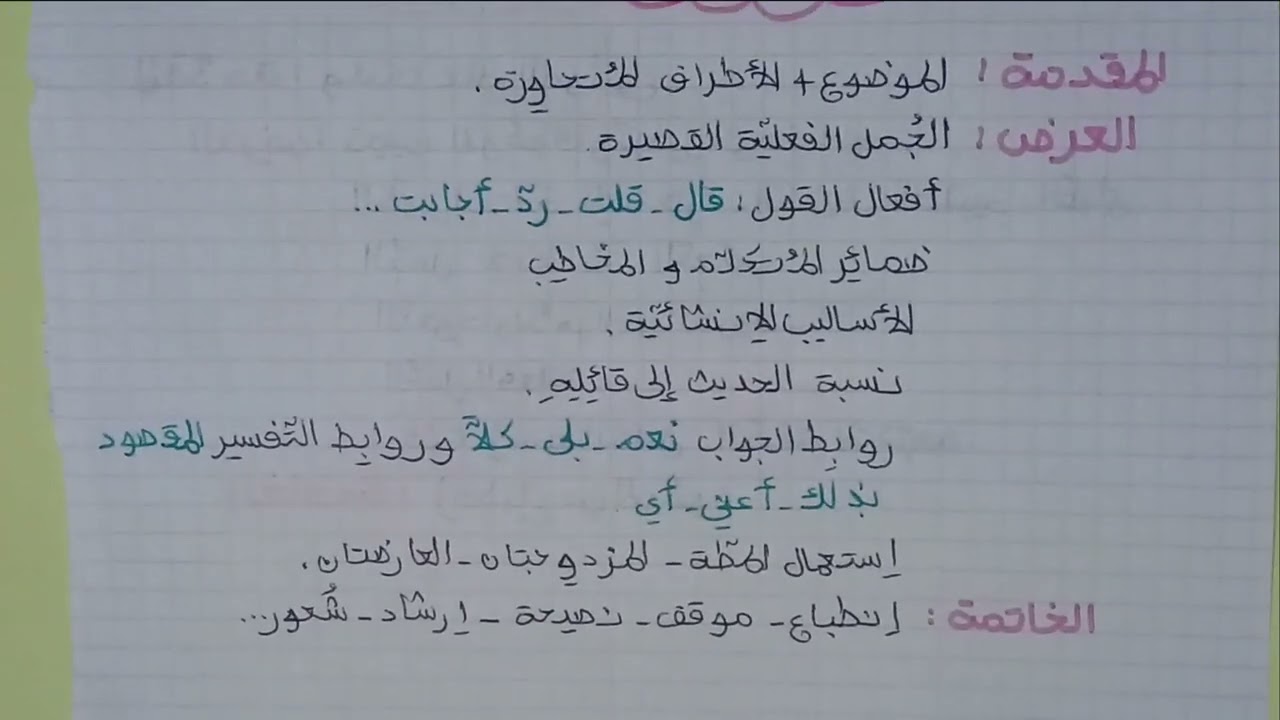 المقدمة: الموضوع + الأطراف المُتحاوِرة.
العرض: الجُمل الفعليّة القصيرة.
أفعال القول: قال - قلت - ردّ - أجابت ...
ضمائِر المُتكلّم و المخاطِب
الأساليب الإنشائيّة.
نسبة الحديث إلى قائِلِهِ.
روابِط الجواب نعم - بلى - كلاَّ وروابِط التّفسير المقصود
بذلك - أعني - أي
إستعمال المطّة - المزدوِجتان - العارضتان.
الخاتمة: إنطباع - موقف - نصيحة - إرشاد - شُعور...